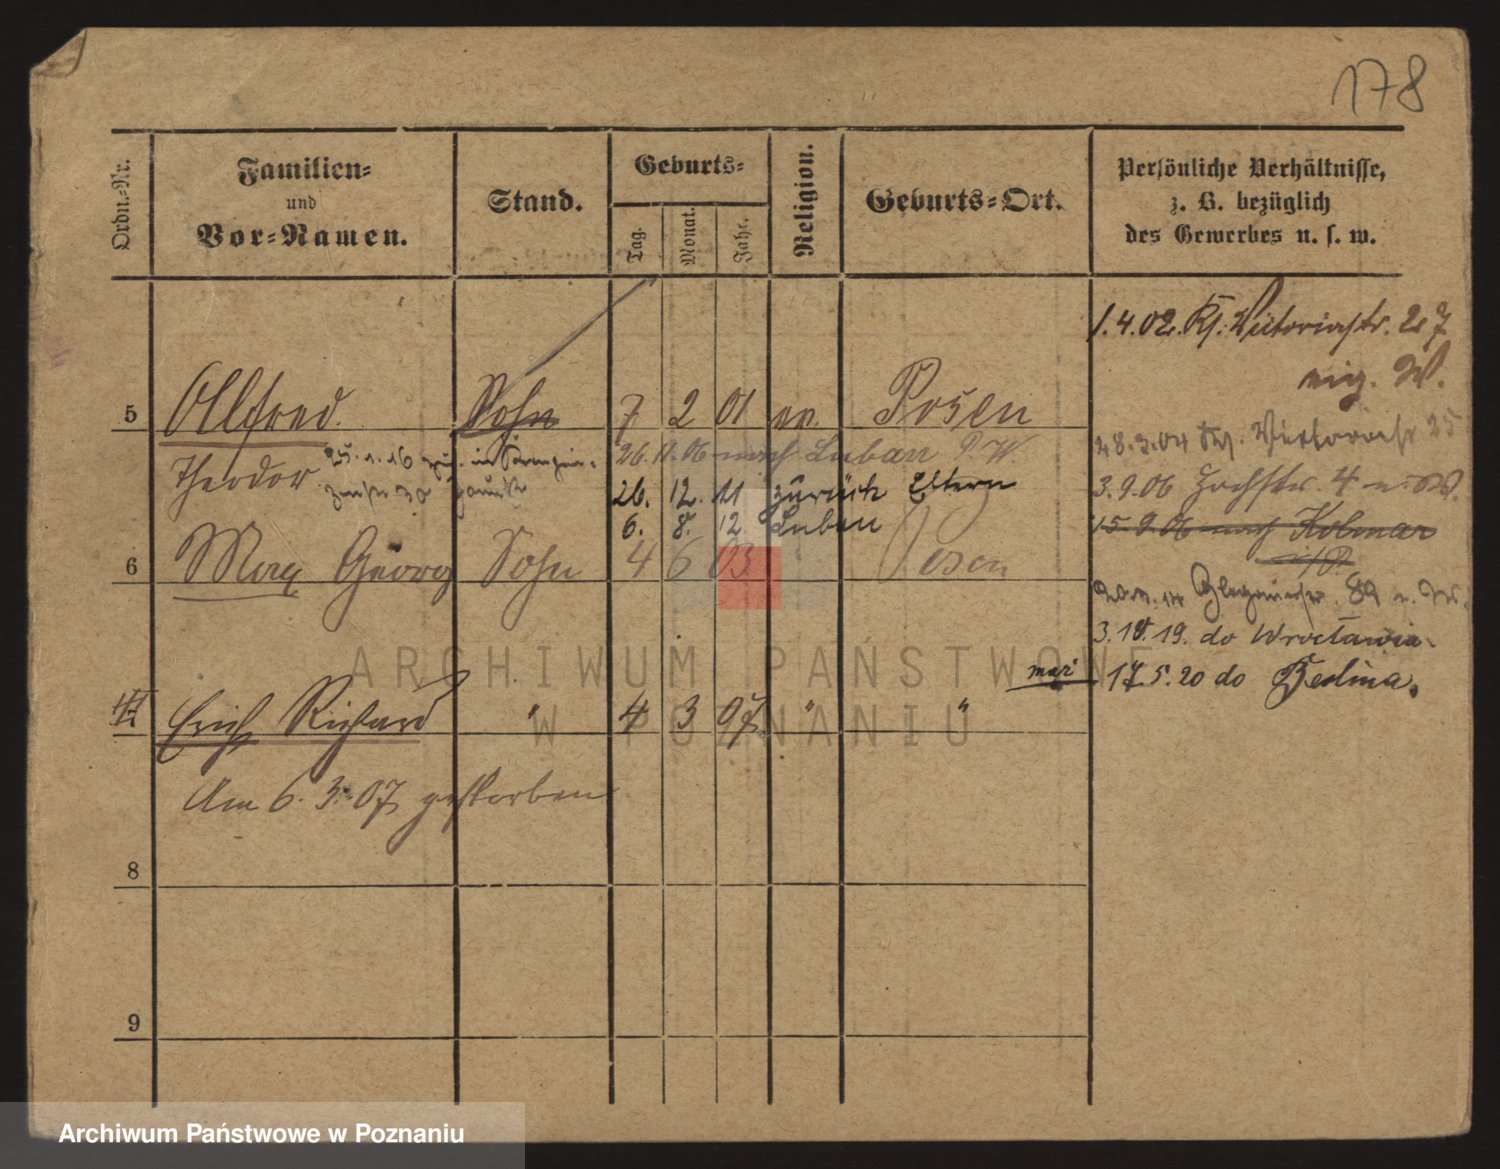 178
Ordn.-Nr.
Familien-
und
Vor-Namen.
Stand.
Geburts-
Tag.
Monat.
Jahr.
Religion.
Geburts-Ort.
Persönliche Verhältnisse,
z. B. bezüglich
des Gewerbes u. s. w.
1.4.02. Victoriastr. 27
eig. W.
5 Alfred Sohn 7 2 01 ev. Posen
Theodor
26.11.06 nach Luban P. W.
26. 12. 11 zurück Eltern
6. 8. 12 Luban
6 Max Georg Sohn 4 6 03 Posen
28.3.04 Victoriastr 25
3.9.06 Hochstr. 4 W.
15.9.06 nach Kolmar
i/P.
89
3.10.19. do Wrocławia.
17.5.20 do Berlina.
Erich Richard " 4 3 07 " "
Am 6.3.07 gestorben
8
9
ARCHIWUM PAŃSTWOWE
W POZNANIU
Archiwum Państwowe w Poznaniu